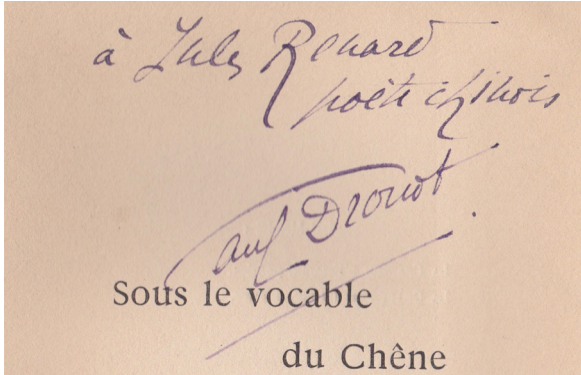 à Jules Renard
poète chinois
Paul Drouot
Sous le vocable
du Chêne